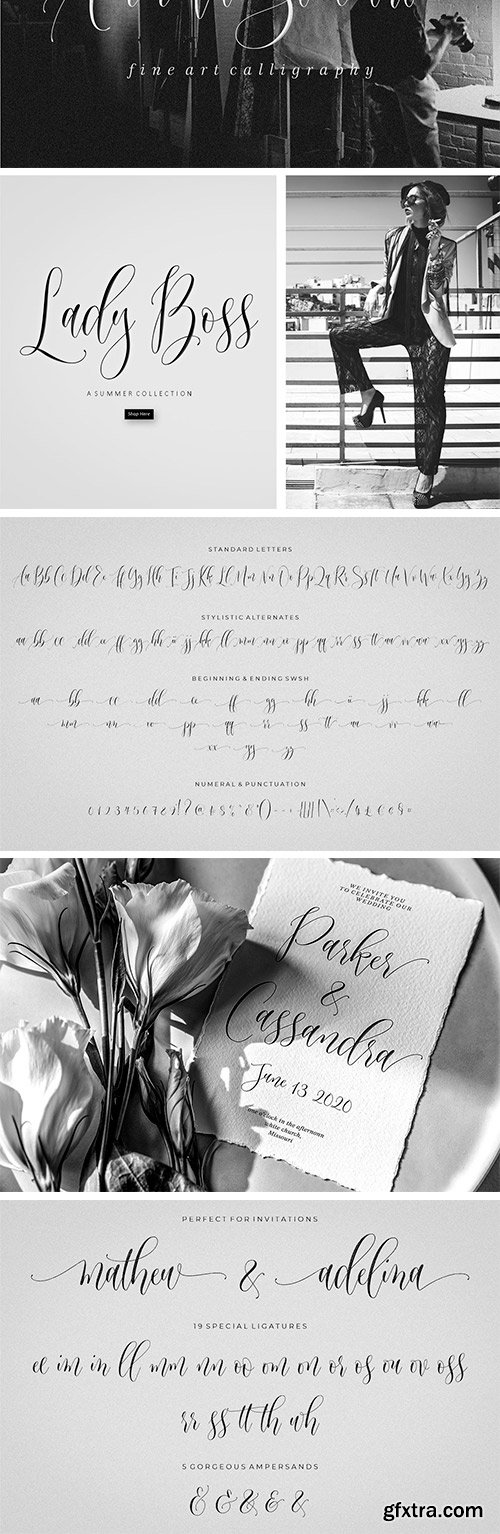 fine art calligraphy
Lady Boss
A SUMMER COLLECTION
Shop Here
STANDARD LETTERS
Aa Bb Cc Dd Ee Ff Gg Hh Ii Jj Kk Ll Mm Nn Oo Pp Qq Rr Ss Tt Uu Vv Ww Xx Yy Zz
STYLISTIC ALTERNATES
aa bb cc dd ee ff gg hh ii jj kk ll mm nn oo pp qq rr ss tt uu vv ww xx yy zz
BEGINNING & ENDING SWSH
aa bb cc dd ee ff gg hh ii jj kk ll
mm nn oo pp qq rr ss tt uu vv ww
xx yy zz
NUMERAL & PUNCTUATION
0123456789!?@#$%^&*()
WE INVITE YOU
TO CELEBRATE OUR
WEDDING
Parker
&
Cassandra
June 13 2020
one o'clock in the afternonn
white church,
Missouri
PERFECT FOR INVITATIONS
mathew & adelina
19 SPECIAL LIGATURES
ee im in ll mm nn oo om on or os ou ov oss
rr ss tt th wh
5 GORGEOUS AMPERSANDS
& & & & &
gfxtra.com